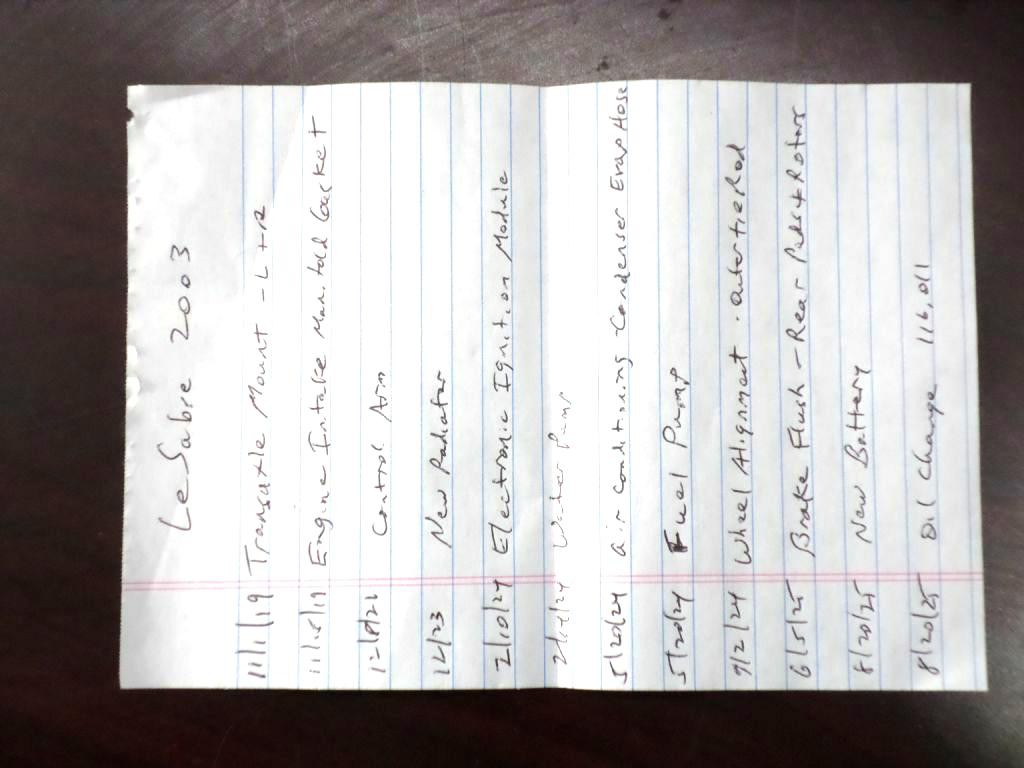 LeSabre 2003
11/1/19 Transaxle Mount - L + R
11/15/19 Engine Intake Manifold Gasket
12/8/21 Control Arm
12/23 New Radiator
2/10/24 Electronic Ignition Module
Water Pump
5/20/24 Air Conditioning Condenser Evap Hose
5/20/24 Fuel Pump
9/2/24 Wheel Alignment - outer tie Rod
6/5/25 Brake Flush - Rear Pads & Rotors
8/20/25 New Battery
8/20/25 Oil Change 116,011